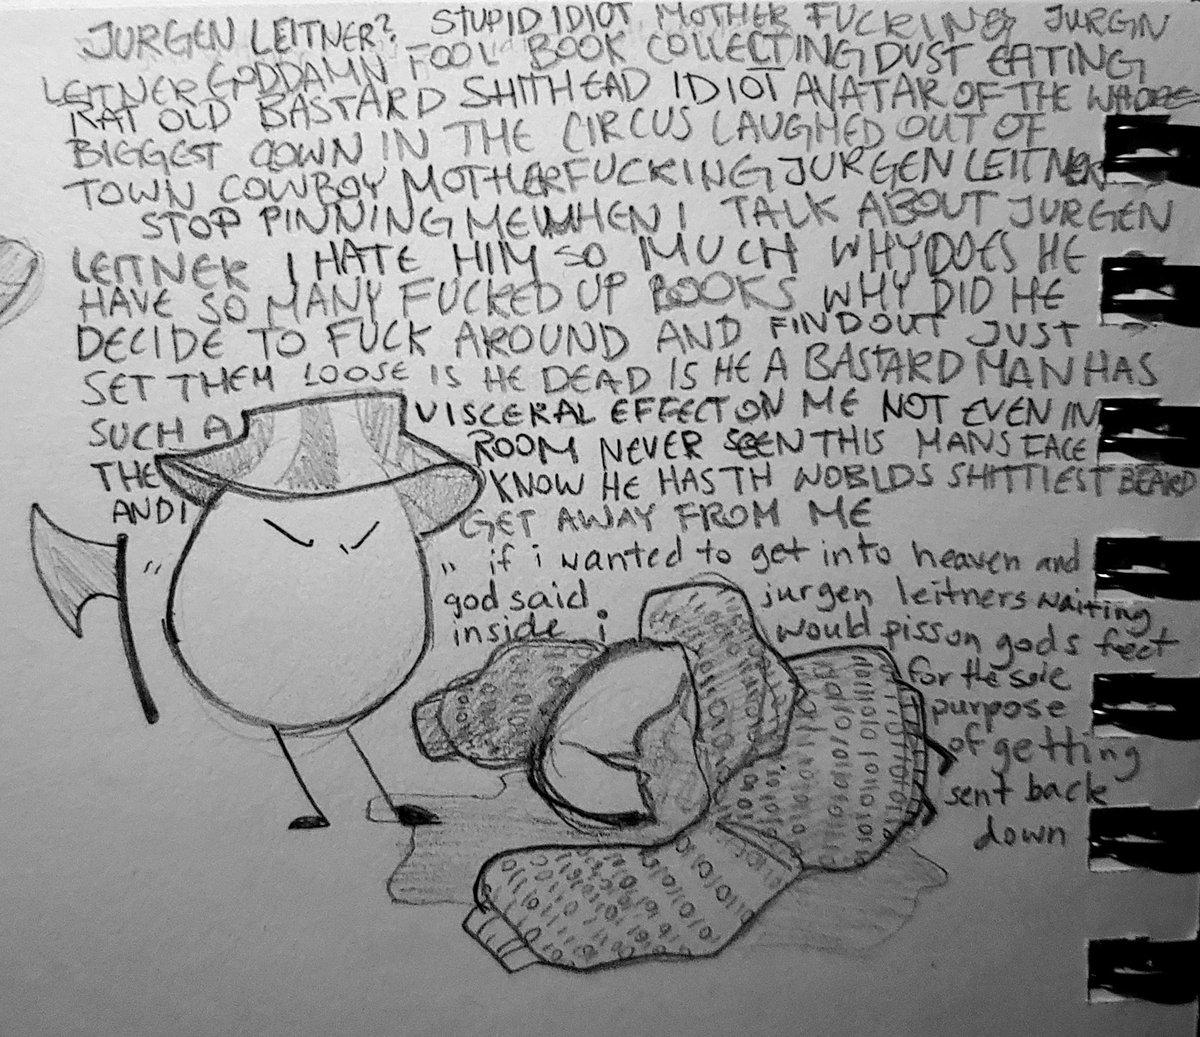 JURGEN LEITNER? STUPID IDIOT MOTHER FUCKING JURGIN
LEITNER GODDAMN FOOL BOOK COLLECTING DUST EATING
RAT OLD BASTARD SHITHEAD IDIOT AVATAR OF THE WHORE
BIGGEST COWN IN THE CIRCUS LAUGHED OUT OF
TOWN COWBOY MOTHERFUCKING JURGEN LEITNER
STOP PINNING ME WHEN I TALK ABOUT JURGEN
LEITNER I HATE HIM SO MUCH WHY DOES HE
HAVE SO MANY FUCKED UP BOOKS WHY DID HE
DECIDE TO FUCK AROUND AND FIND OUT JUST
SET THEM LOOSE IS HE DEAD IS HE A BASTARD MAN HAS
SUCH A VISCERAL EFFECT ON ME NOT EVEN IN
THE ROOM NEVER SEEN THIS MANS FACE
AND I KNOW HE HAS TH WORLDS SHITTIEST BEARD
GET AWAY FROM ME
if i wanted to get into heaven and
god said jurgen leitners waiting
inside i would piss on gods feet
for the sole
purpose
of getting
sent back
down